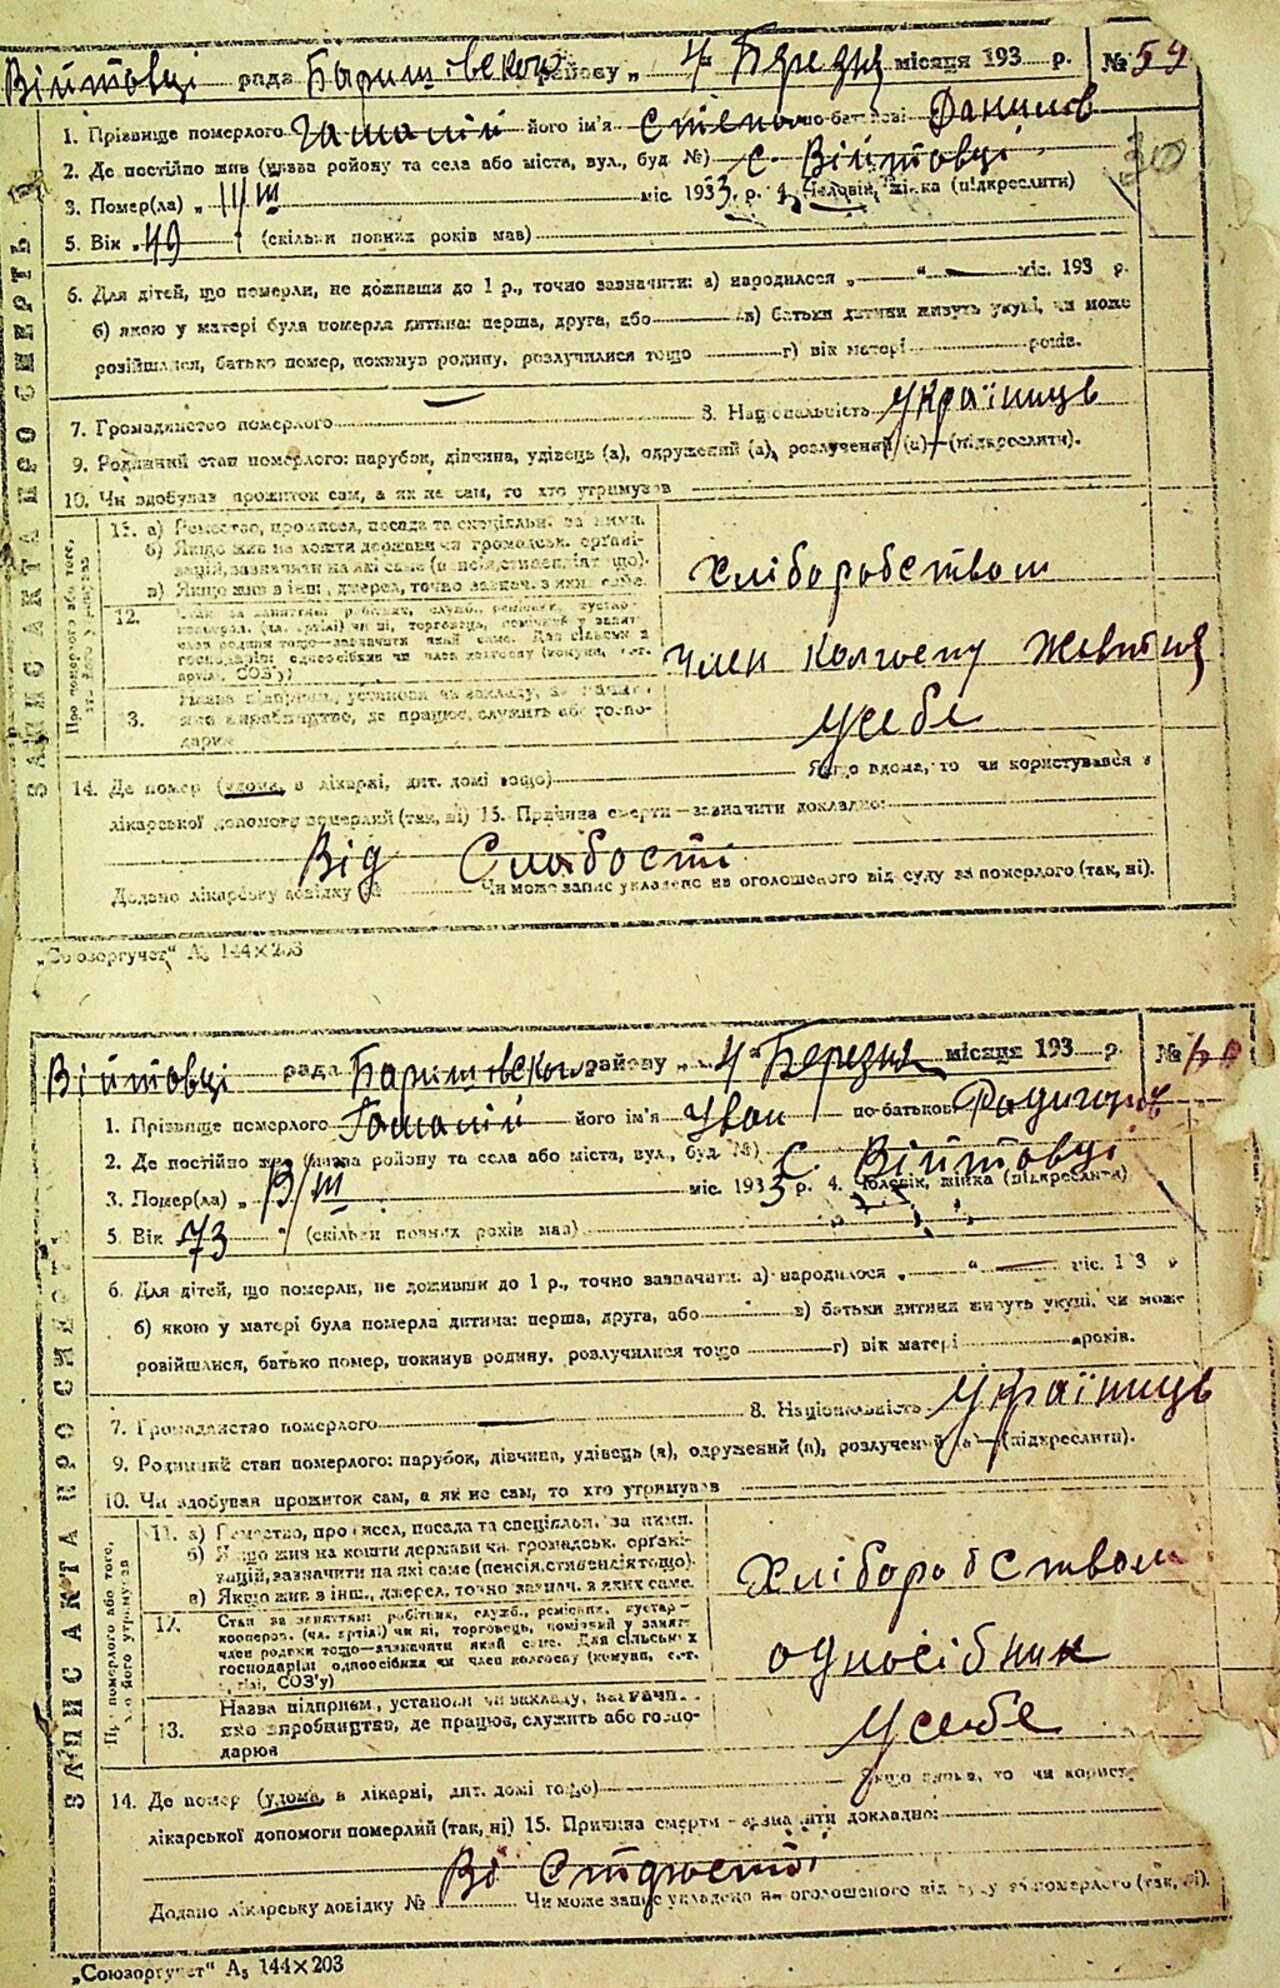 Війтовці рада Баришівського району „ 4 " Березня місяця 193 р. № 59
1. Прізвище померлого його ім'я Степан по батькові Данилов
30
2. Де постійно жив (назва району та села або міста, вул., буд. №) с. Війтовці
3. Помер(ла) „ ІІІ міс. 1933 р. 4. Чоловік, жінка (підкреслити)
5. Вік 49 (скільки повних років мав)
6. Для дітей, що померли, не доживши до 1 р., точно зазначити: а) народилося „ “ міс. 193 р.
б) якою у матері була померла дитина: перша, друга, або в) батьки дитини живуть укупі, чи може
розійшлися, батько помер, покинув родину, розлучилися тощо г) вік матері років.
7. Громадянство померлого 8. Національність Українець
9. Родинний стан померлого: парубок, дівчина, удівець (а), одружений (а), розлучений (а)—(підкреслити).
10. Чи здобував прожиток сам, а як не сам, то хто утримував
ЗАПИС АКТА ПРО СМЕРТЬ
11. а) Ремество, промисел, посада та спеціяльн. за ними.
б) Якщо жив на кошти держави чи громадськ. органі-
зацій, зазначити на які саме (пенсія, стипендія тощо).
в) Якщо жив в інш., джерел, точно зазнач. з яких саме.
Хліборобством
12.
член колгоспу Жовтня
13. Назва підприєм., установи чи закладу, зазначи
яке виробництво, де працює, служить або госпо-
дарює
У себе
14. Де помер (удома, в лікарні, дит. домі тощо) Якщо вдома, то чи користувався з
лікарської допомоги померлий (так, ні) 15. Причина смерти—зазначити докладно:
Від Слабості
Додано лікарську довідку № Чи може запис укладено на оголошеного від суду за померлого (так, ні).
„Союзоргучет“ А5 144×203
Війтовці рада Баришівського району „ 4 " Березня місяця 193 р. №
1. Прізвище померлого його ім'я Іван по-батькові
2. Де постійно жив (назва району та села або міста, вул., буд. №) С. Війтовці
3. Помер(ла) „ ІІІ міс. 1933 р. 4. Чоловік, жінка (підкреслити)
5. Вік 73 (скільки повних років мав)
6. Для дітей, що померли, не доживши до 1 р., точно зазначити: а) народилося „ “ міс. 193
б) якою у матері була померла дитина: перша, друга, або в) батьки дитини живуть укупі, чи може
розійшлися, батько помер, покинув родину, розлучилися тощо г) вік матері років.
7. Громадянство померлого 8. Національність Українець
9. Родинний стан померлого: парубок, дівчина, удівець (а), одружений (а), розлучений (а)—(підкреслити).
10. Чи здобував прожиток сам, а як не сам, то хто утримував
ЗАПИС АКТА ПРО СМЕРТЬ
11. а) Ремество, промисел, посада та спеціяльн. за ними.
б) Якщо жив на кошти держави чи громадськ. органі-
зацій, зазначити на які саме (пенсія, стипендія тощо).
в) Якщо жив в інш., джерел, точно зазнач. з яких саме.
Хліборобством
12. Стан за заняттям: робітник, служб., ремісник, кустар—
кооперов. (чл. артілі) чи ні, торговець, помічний у занят.
член родини тощо—зазначити який саме. Для сільськ х
господарів: одноосібник чи член колгоспу (комуни, с.-г.
артілі, СОЗ'у)
односібник
13. Назва підприєм., установи чи закладу, зазначи
яке виробництво, де працює, служить або госпо-
дарює
У себе
14. Де помер (удома, в лікарні, дит. домі тощо) Якщо вдома, то чи корист
лікарської допомоги померлий (так, ні) 15. Причина смерти—зазначити докладно:
Ві
Додано лікарську довідку № Чи може запис укладено на оголошеного від суду за померлого (так, ні).
„Союзоргучет“ А5 144×203